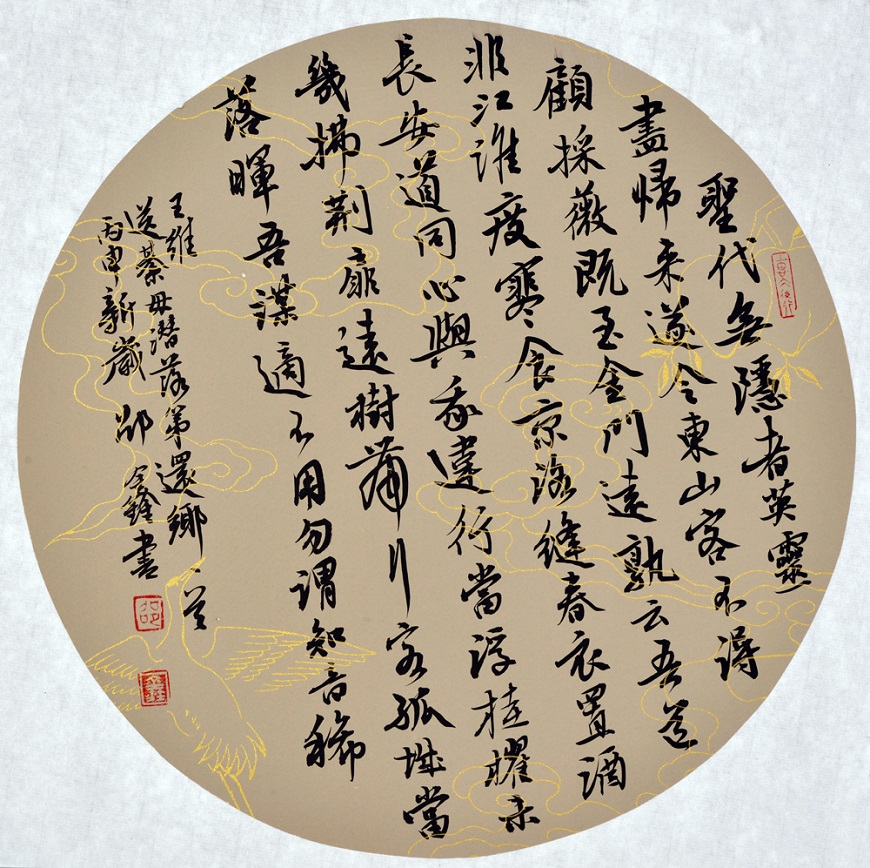 聖代無隱者英靈
盡歸来遂令東山客不得
顧採薇既至金門遠孰云吾道
非江淮度寒食京洛縫春衣置酒
長安道同心與我違行當浮桂櫂未
幾拂荊扉遠樹帶行客孤城當
落暉吾謀適不用勿謂知音稀
王維
送綦毋潛落第還鄉一首
丙申新歲邵鑫書
邵
鑫